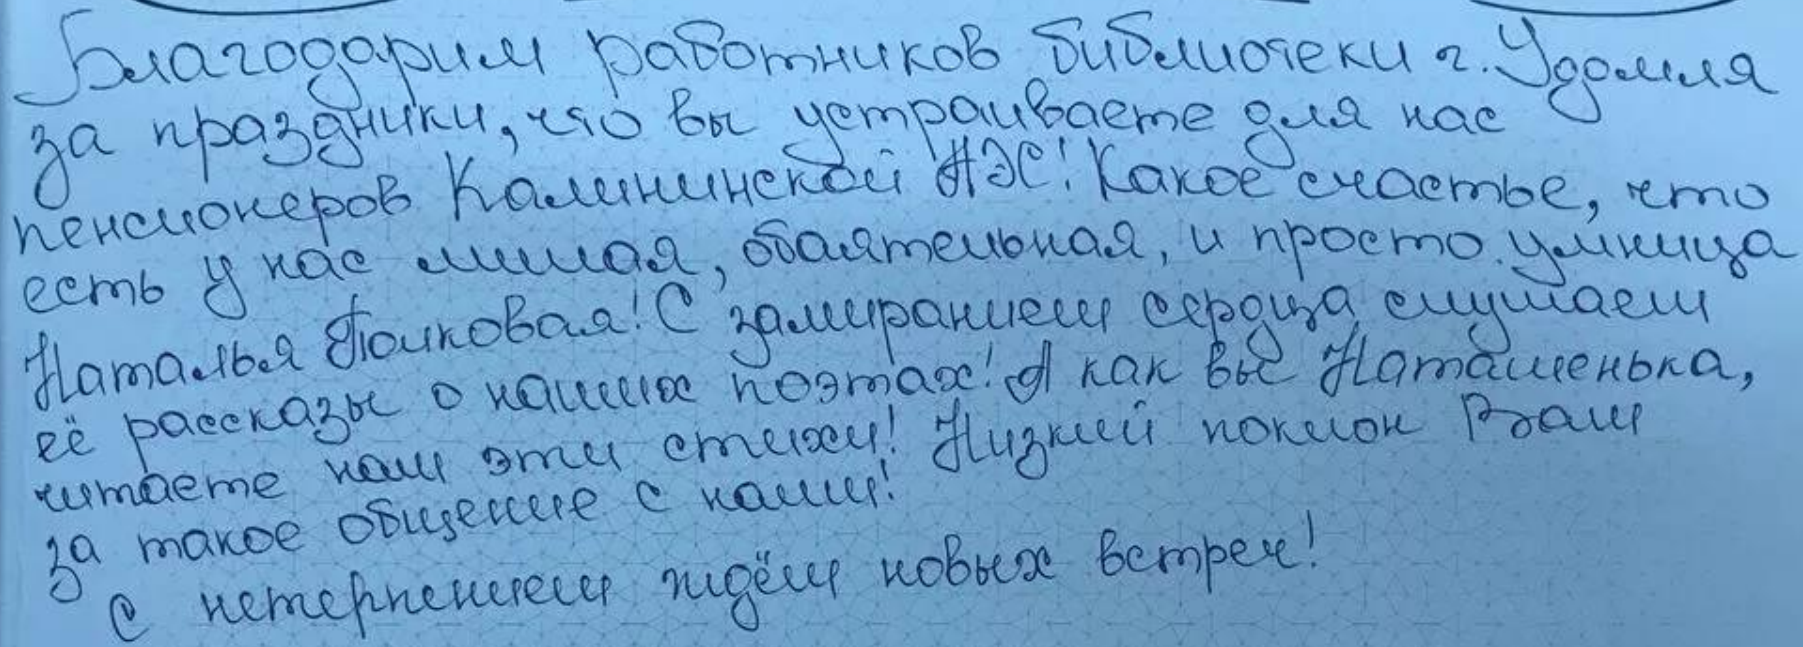 Благодарим работников библиотеки г. Удомля
за праздники, что вы устраиваете для нас
пенсионеров Калининской АЭС! Какое счастье, что
есть у нас милая, обаятельная, и просто умница
Наталья Полковая! С замиранием сердца слушаем
её рассказы о наших поэтах! А как вы Наташенька,
читаете нам эти стихи! Низкий поклон Вам
за такое общение с нами!
С нетерпением ждём новых встреч!